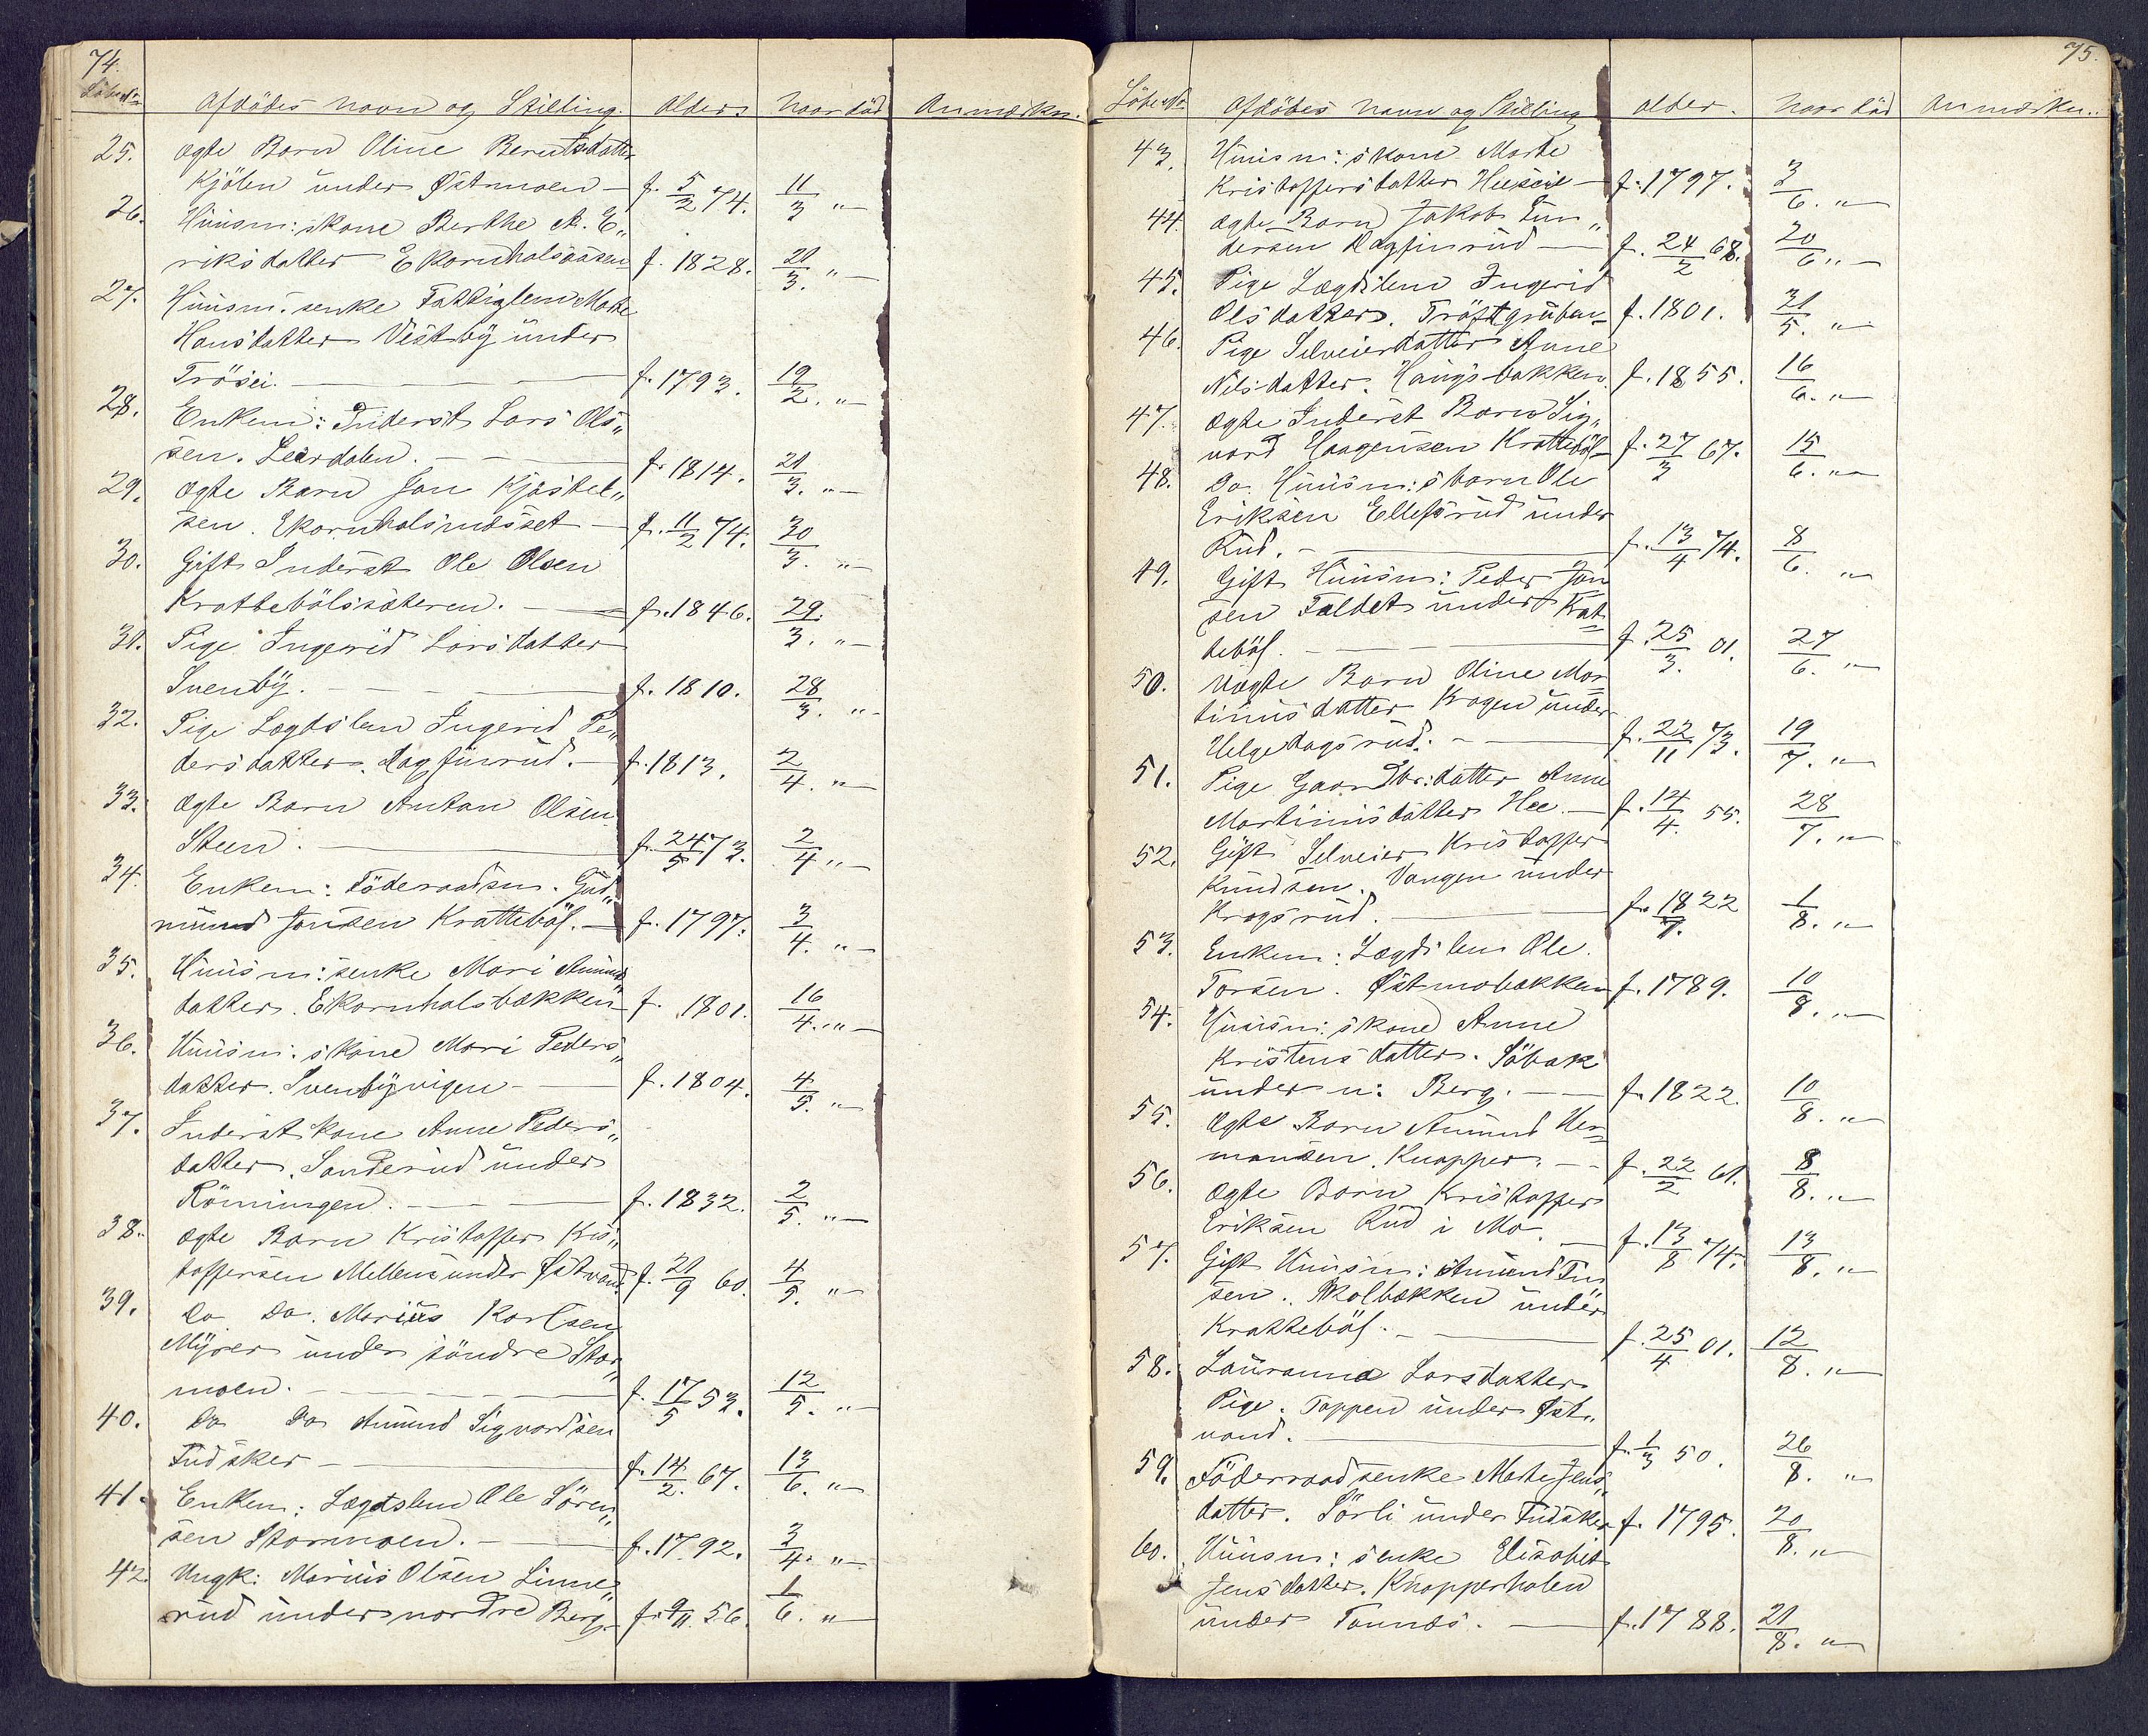 74.
Löbe No Afdödes Navn og Stilling. Alder. Naar död Anmærkn.
25. Ægte Barn Oline Berntsdatter
Kjölen under Östmoen — f. 5/2 74. 11/3 „—
26. Huusm:skone Berthe A. E„
riksdatter Ekornholsaasen f. 1828. 21/3. „—
27. Huusm:senke Fattiglem Marte
Hansdatter Vestby under
Trösei. — f. 1793. 19/2. „—
28. Enkem: Inderst Lars Ols„
sen. Leirdalen. — f. 1814. 21/3. „—
29. Ægte Barn Jan Kjöstel„
sen. Ekornholsnæsset — f. 11/2 74. 30/3. „—
30. Gift Inderst Ole Olsen
Krattebölssæteren. — f. 1846. 29./3. „—
31. Pige Ingerid Larsdatter
Svenby. — f. 1810. 28/3. „—
32. Pige Lægdslem Ingerid Pe„
dersdatter. Dagfinrud. — f. 1813. 2/4. „—
33. Ægte Barn Anton Olsen
Steen. — f. 24/5 73. 2/4 „—
34. Enkem: Föderaadsm. Gud„
mund Jonsen Kratteböl. — f. 1797. 3/4. „—
35. Huusm:senke Mari Amund„
datter. Ekornholsbakken f. 1801. 16/4. „—
36. Huusm:skone Mari Peders„
datter. Svenbyvigen — f. 1804. 4/5. „—
37. Inderstkone Anne Peders„
datter. Sanderud under
Römingen. — f. 1832. 2/5. „—
38. Ægte Barn Kristoffer Kris„
toffersen Mellem under Östvand f. 21/9 60. 4/5. „—
39. Do Do. Marius Karlsen
Myrer under söndre Stor„
moen. — f. 17/5 53. 12/5. „—
40. Do Do Amund Sigvardsen
Tudsker — f. 14/2. 67. 13/6. „—
41. Enkem: Lægdslem Ole Sören„
sen Stormoen. — f. 1792. 3/4. „—
42. Ungk: Marius Olsen Linne„
rud under nordre Berg f. 9/11 56. 1/6. „
75.
Löbe No Afdödes Navn og Stilling Alder. Naar död Anmærkn.
43. Huusm:skone Marte
Kristoffersdatter Huseie — f. 1797. 3/6. „—
44. Ægte Barn Jakob Gun„
dersen Dagfinrud — f. 24/2 68. 20/6 „—
45. Pige Lægdslem Ingerid
Olsdatter. Tröftgruben f. 1801. 31/5. „—
46. Pige Selveierdatter Anne
Nilsdatter. Haugsbakken. f. 1855. 16/6. „—
47. Ægte Inderst Barn Sig„
vard Haagensen Kratteböl f. 27/3 67. 15/6. „—
48. Do. Huusm:sbarn Ole
Eriksen Ellefsrud under
Rud. — f. 13/4 74. 8/6. „—
49. Gift Huusm: Peder Jon
sen Faldet under Krat
teböl. — f. 25/3. 01. 27/6. „—
50. Uægte Barn Oline Mar
tinusdatter Kragen under
Helgedagsrud. — f. 22/11 73. 19/7. „—
51. Pige Gaardbr:datter Anne
Martinusdatter Hee. — f. 14/4. 55. 28/7. „—
52. Gift Selveier Kristoffer
Knudsen. Vangen under
Kragsrud. — f. 18/7. 22 1/8. „—
53. Enkem: Lægdslem Ole
Torsen. Östmobakken f. 1789. 10/8. „—
54. Huusm:skone Anne
Kristensdatter. Söbak
under n: Berg. — f. 1822. 10/8. „—
55. Ægte Barn Amund Her
mansen. Knapper. — f. 22/2 61. 8/8. „—
56. Ægte Barn Kristoffer
Eriksen Rud i Mo. — f. 13/8 74. 13/8. „—
57. Gift Huusm: Amund Tru
sen. Skolbakken under
Kratteböl. — f. 25/4 01. 12/8. „—
58. Lauranna Larsdatter
Pige. Tappen under Öst„
vand. — f. 1/3 50. 26/8. „
59. Föderaadsenke Marte Jens„
datter. Sörli under Tudsker f. 1795. 20/8. „—
60. Huusm:senke Elisabet
Jensdatter. Knapperholen
under Tounæs. — f. 1788. 21/8. „—